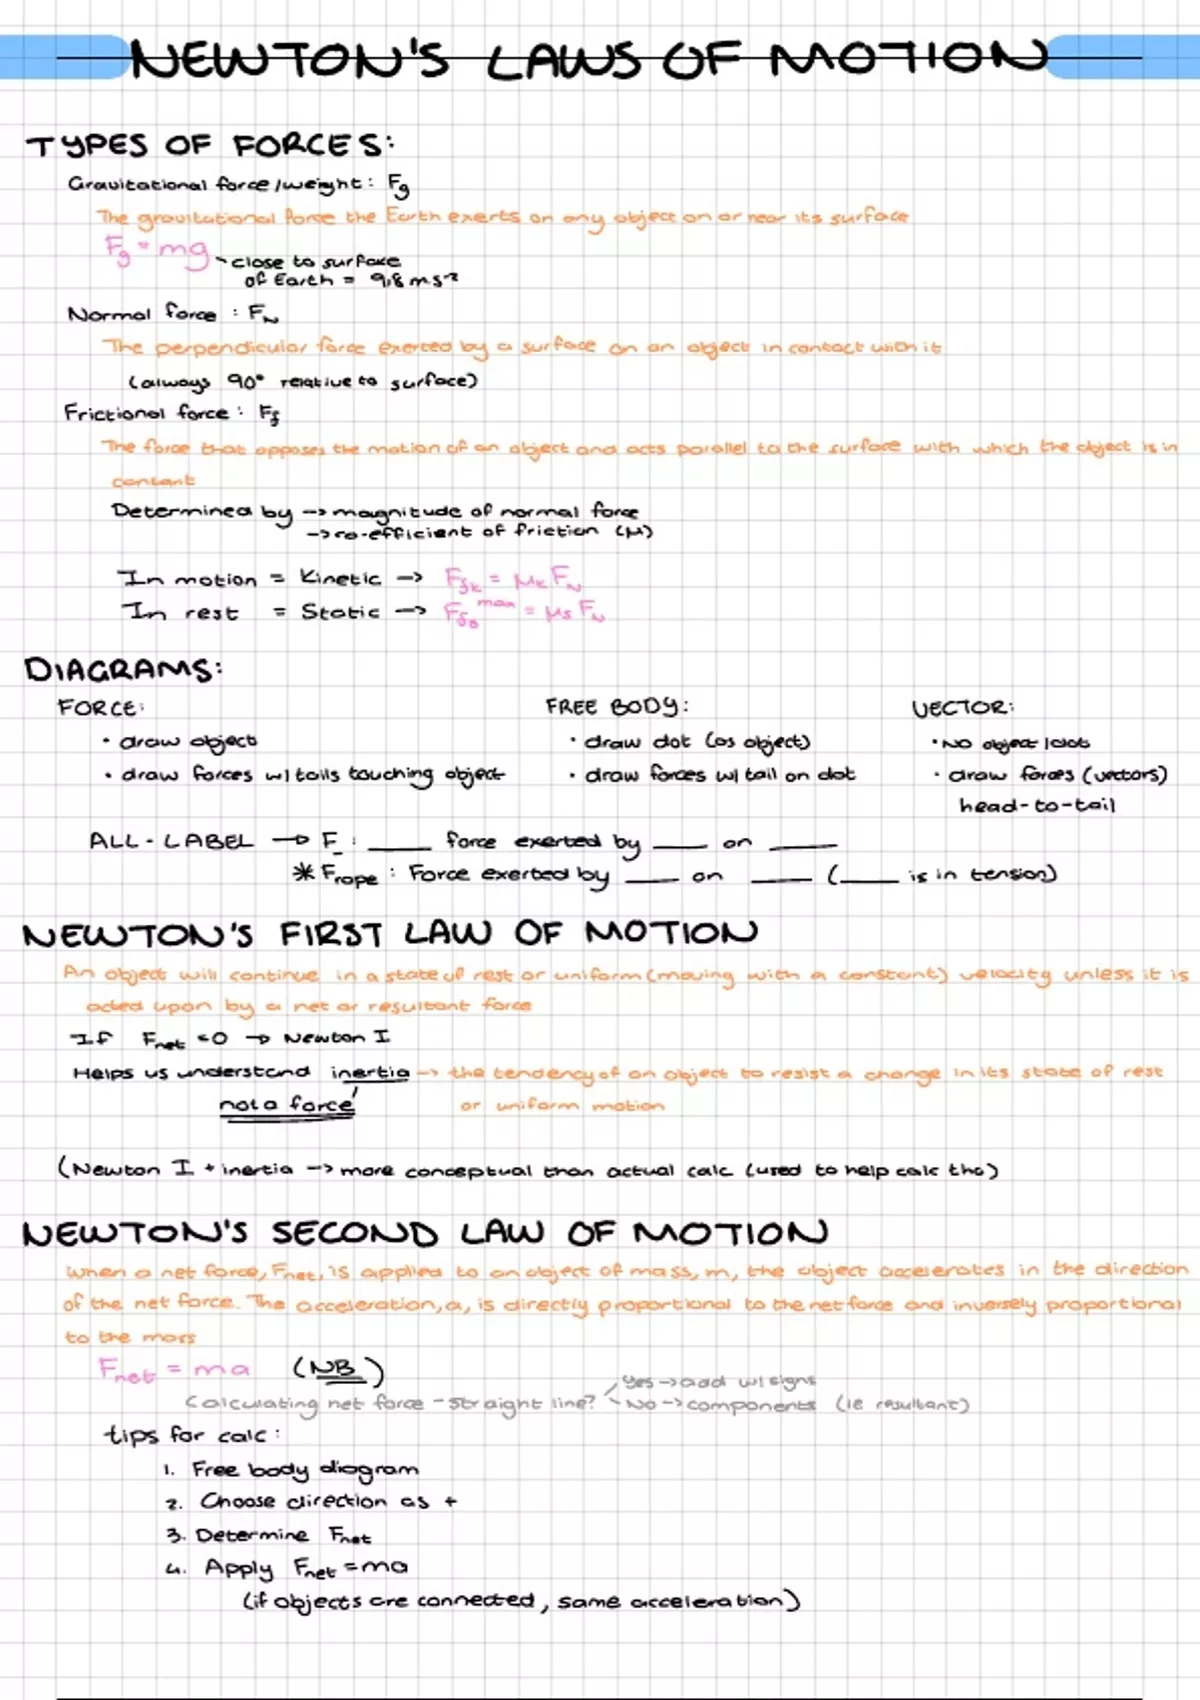 NEWTON'S LAWS OF MOTION
TYPES OF FORCES:
Gravitational force/weight: Fg
The gravitational force the Earth exerts on any object on or near its surface
Fg = mg - close to surface
of Earth = 9,8 m.s⁻²
Normal force : FN
The perpendicular force exerted by a surface on an object in contact with it
(always 90° relative to surface)
Frictional force: Ff
The force that opposes the motion of an object and acts parallel to the surface with which the object is in
contant
Determined by -> magnitude of normal force
-> co-efficient of friction (μ)
In motion = Kinetic -> Ffk = μk FN
In rest = Static -> Ffs max = μs FN
DIAGRAMS:
FORCE: FREE BODY: VECTOR:
• draw object • draw dot (as object) • NO object/dot
• draw forces w/ tails touching object • draw forces w/ tail on dot • draw forces (vectors)
head-to-tail
ALL - LABEL -> F_ : ____ force exerted by ____ on ____
* Frope : Force exerted by ____ on ____ (____ is in tension)
NEWTON'S FIRST LAW OF MOTION
An object will continue in a state of rest or uniform (moving with a constant) velocity unless it is
acted upon by a net or resultant force
If Fnet = 0 -> Newton I
Helps us understand inertia -> the tendency of an object to resist a change in its state of rest
not a force or uniform motion
(Newton I + inertia -> more conceptual than actual calc (used to help calc tho)
NEWTON'S SECOND LAW OF MOTION
When a net force, Fnet, is applied to an object of mass, m, the object accelerates in the direction
of the net force. The acceleration, a, is directly proportional to the net force and inversely proportional
to the mass
Fnet = ma (NB)
Yes -> add w/ signs
Calculating net force - straight line? No -> components (ie resultant)
tips for calc :
1. Free body diagram
2. Choose direction as +
3. Determine Fnet
4. Apply Fnet = ma
(if objects are connected, same acceleration)